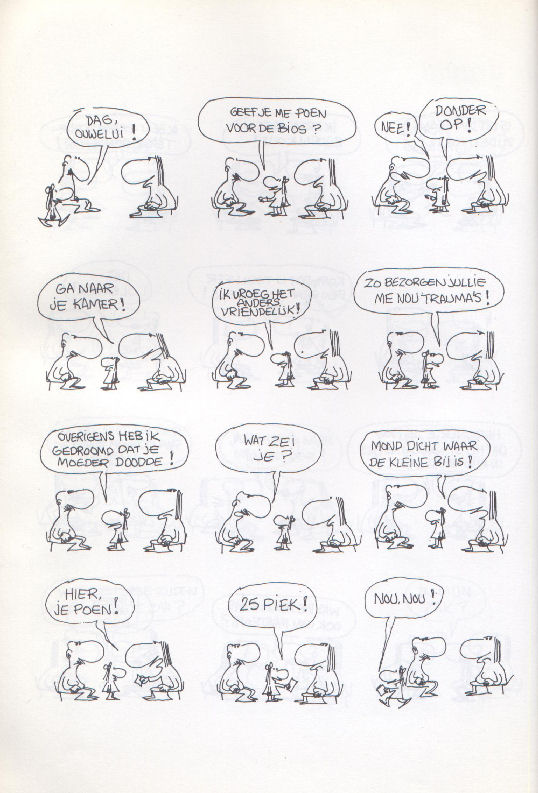 DAG,
OUWELUI!
GEEF JE ME POEN
VOOR DE BIOS?
NEE!
DONDER
OP!
GA NAAR
JE KAMER!
IK VROEG HET
ANDERS
VRIENDELIJK!
ZO BEZORGEN JULLIE
ME NOU TRAUMA'S!
OVERIGENS HEB IK
GEDROOMD DAT JE
MOEDER DOODDE!
WAT ZEI
JE?
MOND DICHT WAAR
DE KLEINE BIJ IS!
HIER,
JE POEN!
25 PIEK!
NOU, NOU!